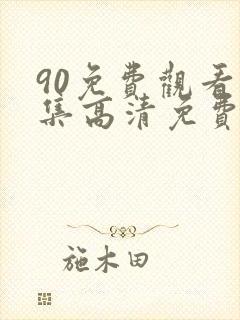 90免費觀看
集高清免費
施木田